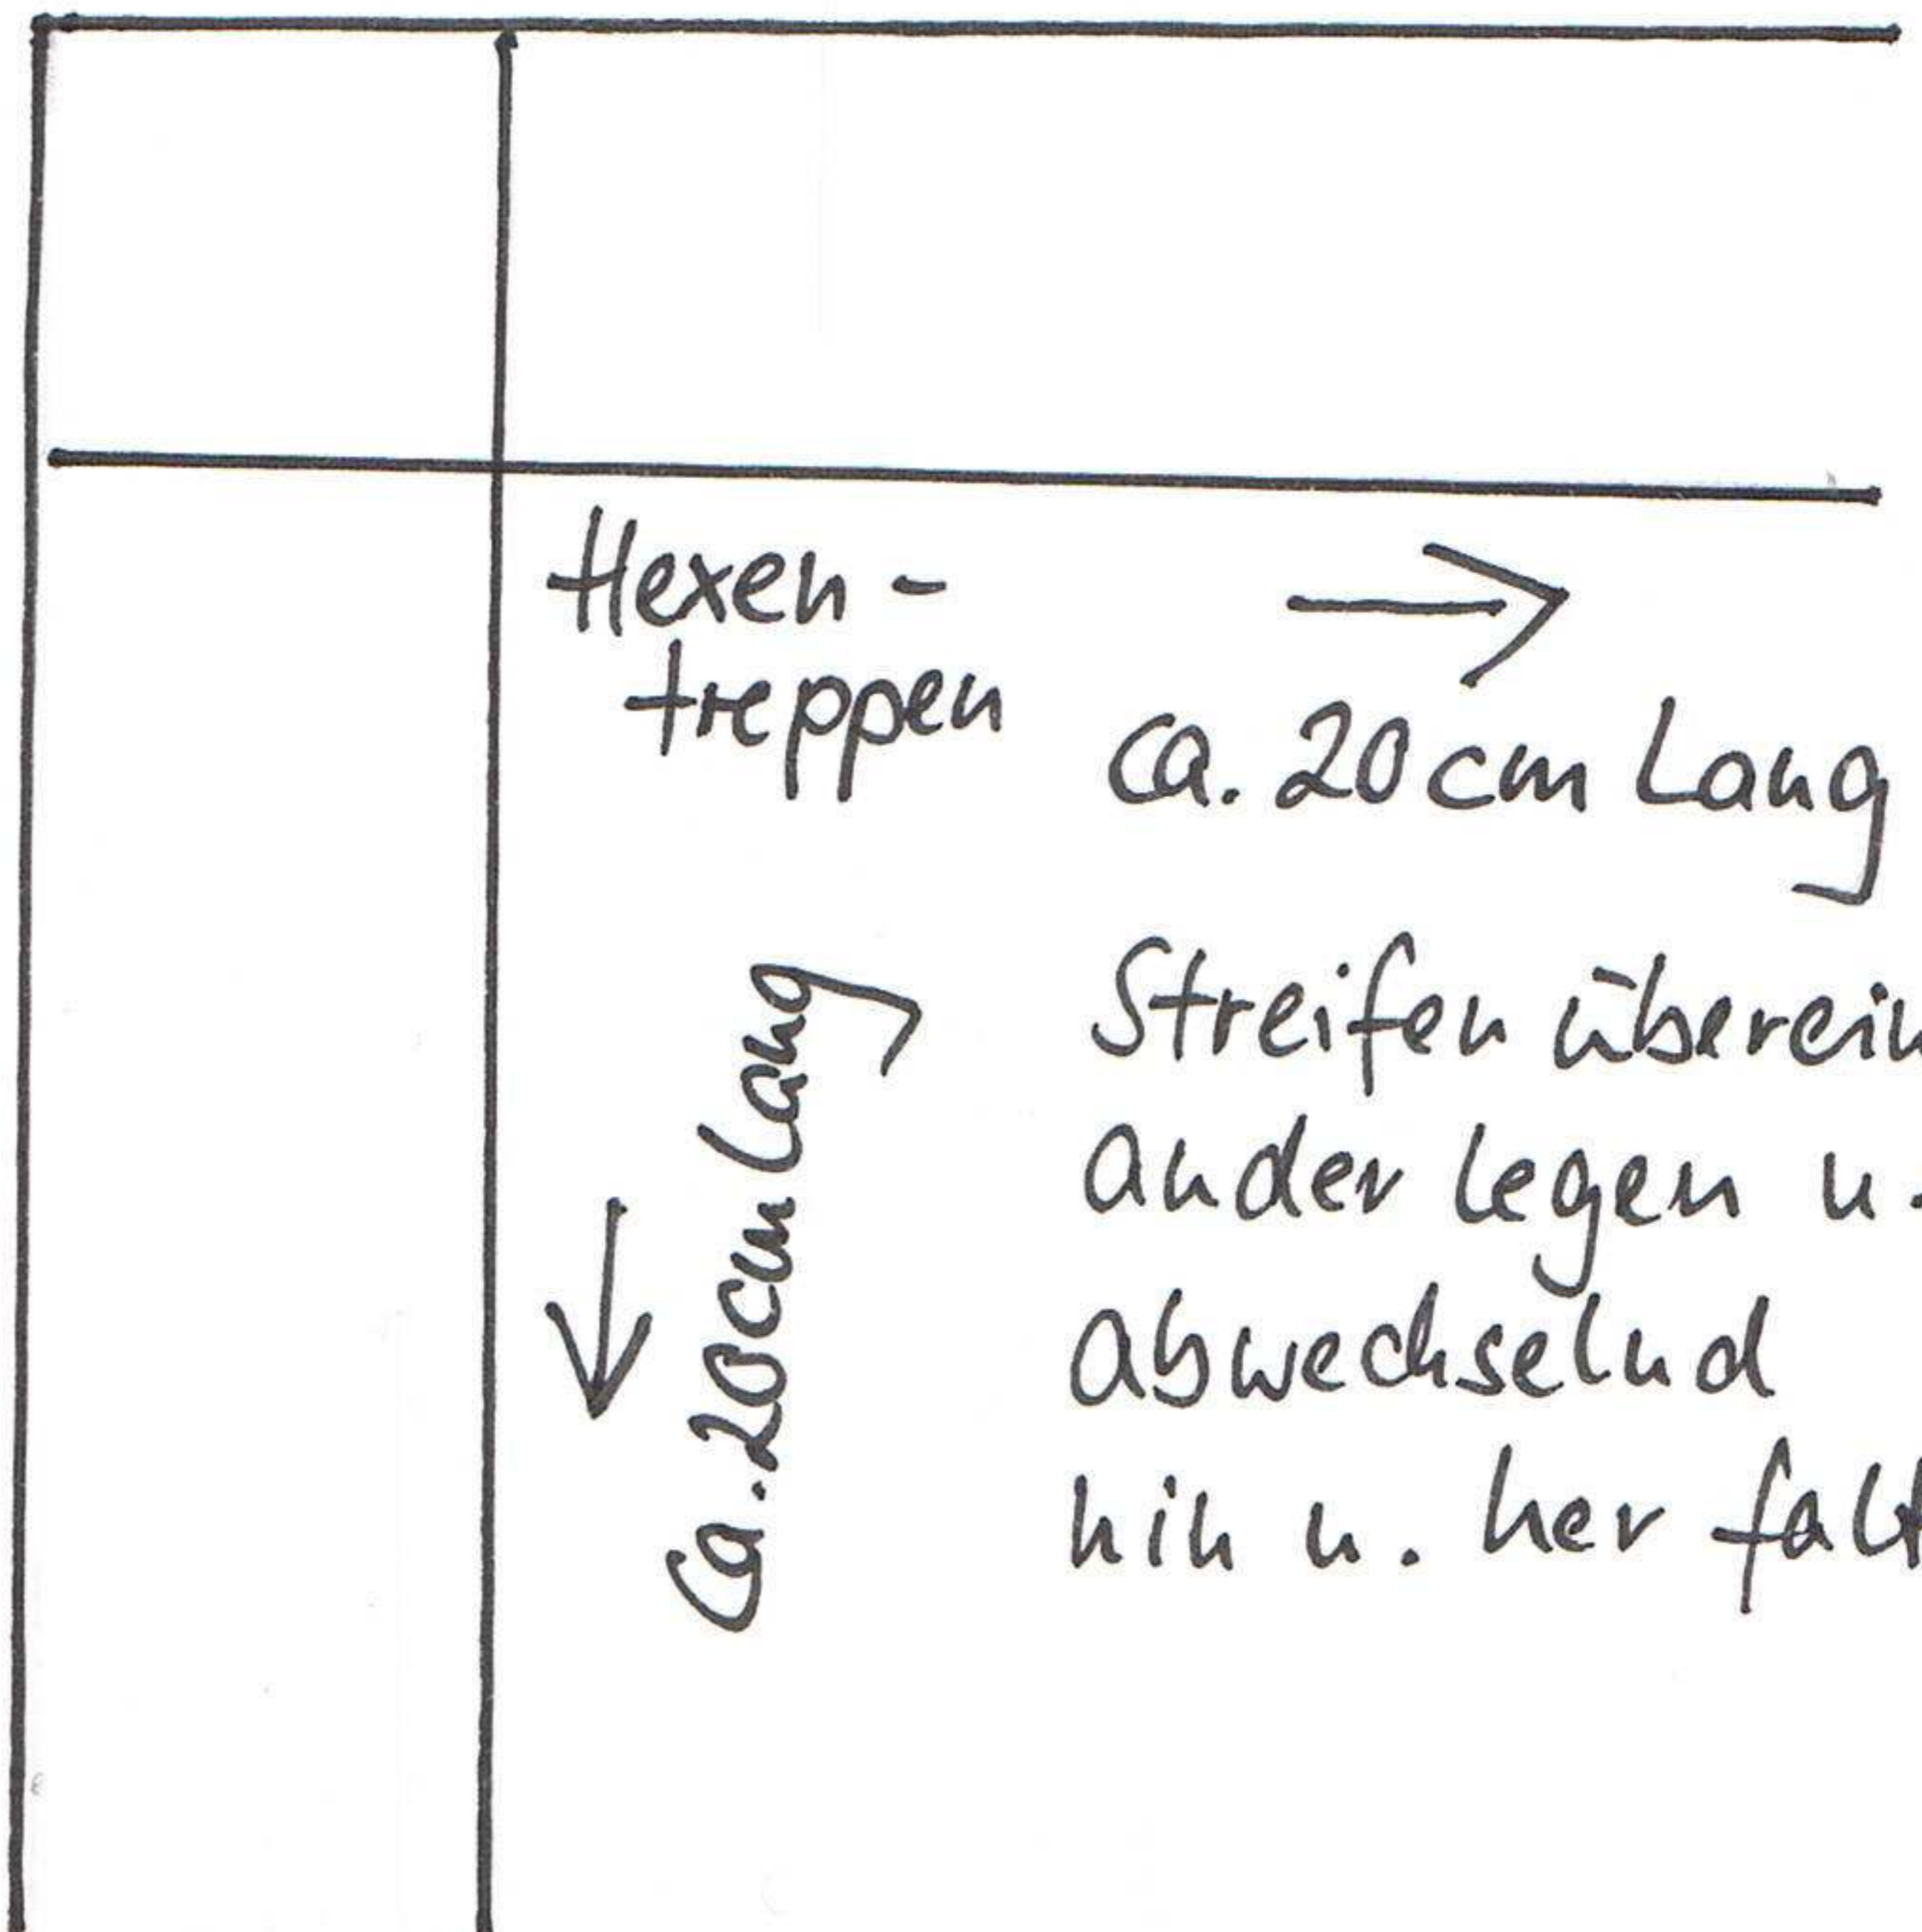 Hexen-
treppen
ca. 20 cm Lang
ca. 20 cm Lang
Streifen überein
ander legen u.
abwechselnd
hin u. her falt